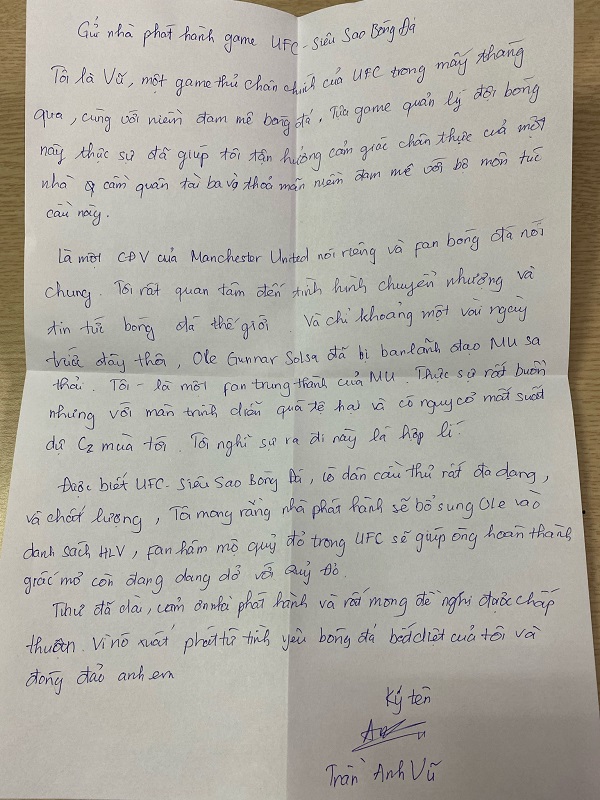 Gửi nhà phát hành game UFC - Siêu Sao Bóng Đá
Tôi là Vũ, một game thủ chân chính của UFC trong mấy tháng
qua, cùng với niềm đam mê bóng đá. Tựa game quản lý đội bóng
này thực sự đã giúp tôi tận hưởng cảm giác chân thực của một
nhà cầm quân tài ba và thoả mãn niềm đam mê với bộ môn túc
cầu này.
Là một CĐV của Manchester United nói riêng và fan bóng đá nói
chung. Tôi rất quan tâm đến tình hình chuyển nhượng và
tin tức bóng đá thế giới. Và chỉ khoảng một vài ngày
trước đây thôi, Ole Gunnar Solsa đã bị ban lãnh đạo MU sa
thải. Tôi - là một fan trung thành của MU. Thực sự rất buồn
nhưng với màn trình diễn quá tệ hại và có nguy cơ mất suất
dự C2 mùa tới. Tôi nghĩ sự ra đi này là hợp lí.
Được biết UFC - Siêu Sao Bóng Đá, có dàn cầu thủ rất đa dạng,
và chất lượng, Tôi mong rằng nhà phát hành sẽ bổ sung Ole vào
danh sách HLV, fan hâm mộ quỷ đỏ trong UFC sẽ giúp ông hoàn thành
giấc mơ còn đang dang dở với Quỷ Đỏ.
Thư đã dài, cảm ơn nhà phát hành và rất mong đề nghị được chấp
thuận. Vì nó xuất phát từ tình yêu bóng đá bất diệt của tôi và
đông đảo anh em
Ký tên
Trần Anh Vũ